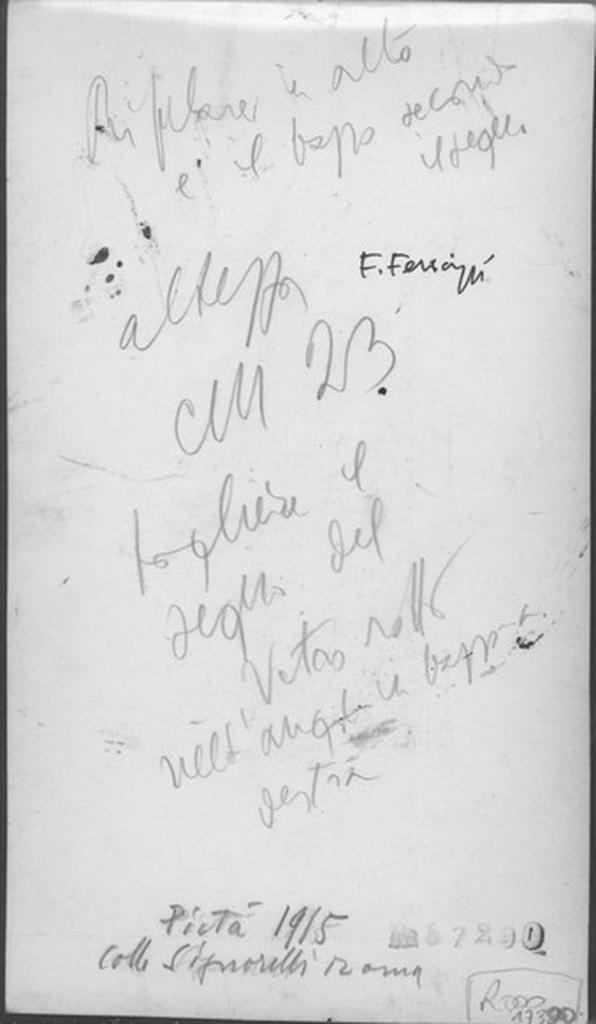 Rifilare in alto
e il basso secondo
il segno
F. Ferrazzi
altezza
CM 23.
togliere il
segno del
Vetro rotto
nell'angolo in basso a
destra
Pietà 1915
Coll. Signorelli Roma
57290